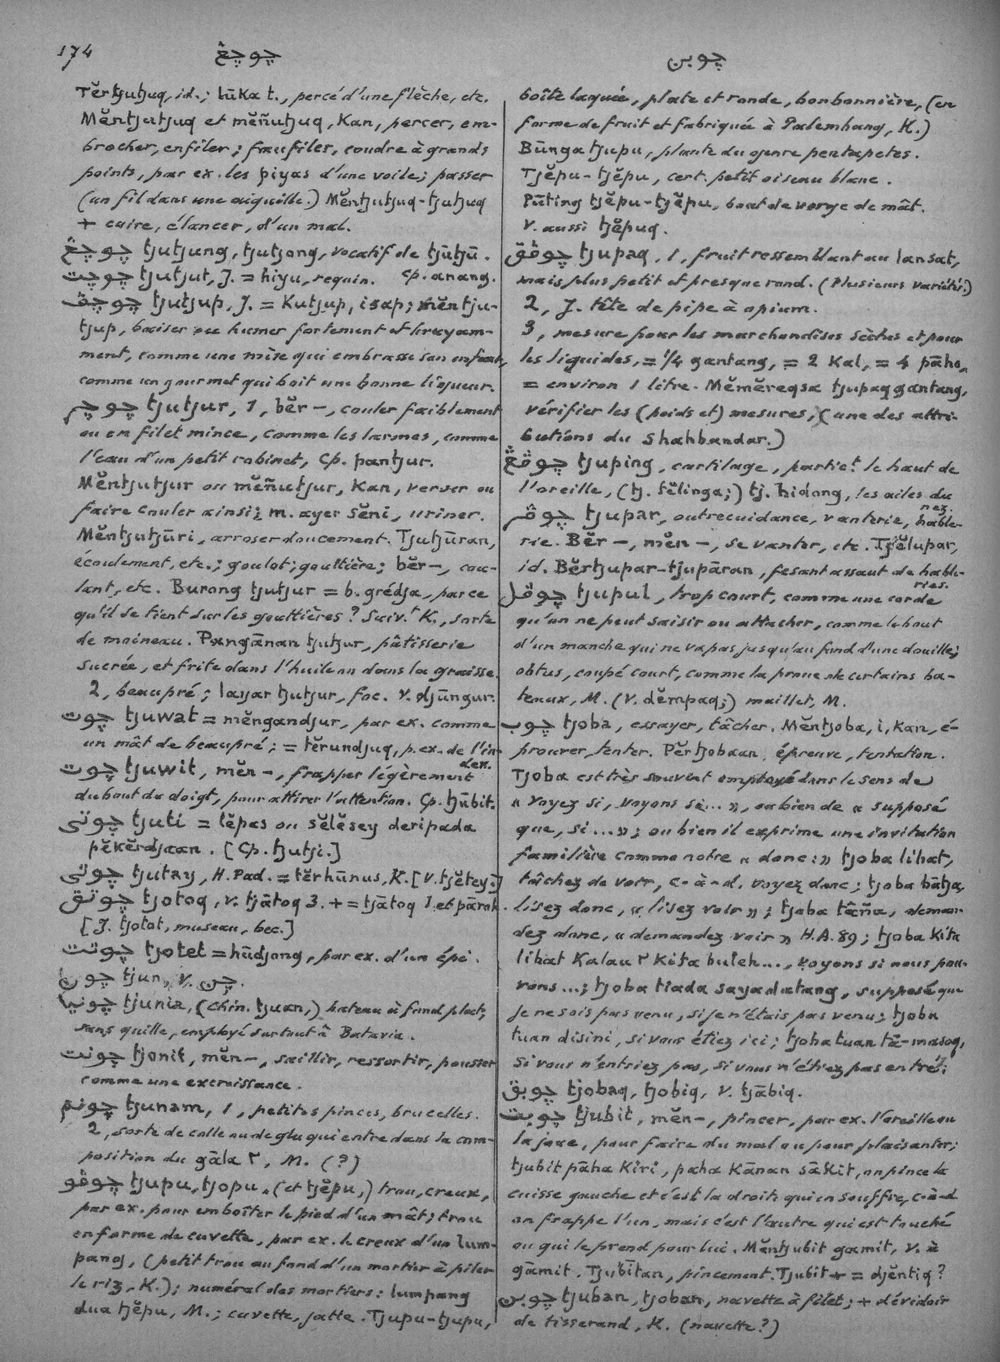 174
چوچڠ
چوبن
Tĕrtjutjuq, id.; lūka t., percé d'une flèche, etc.
Mĕntjutjuq et mĕñutjuq, Kan, percer, em-
brocher, enfiler; faufiler, coudre à grands
points, par ex. les piyas d'une voile; passer
(un fil dans une aiguille.) Mĕntjutjuq-tjutjuq
+ cuire, élancer, d'un mal.
چوچڠ tjutjung, tjutjong, vocatif de tjūtjū.
چوچت tjutjut, J. = hiyu, requin. Cp. anang.
چوچڤ tjutjup, J. = Kutjup, isap; mĕntju-
tjup, baiser ou humer fortement et bruyam-
ment, comme une mère qui embrasse son enfant,
comme un gourmet qui boit une bonne liqueur.
چوچر tjutjur, 1, bĕr –, couler faiblement
ou en filet mince, comme les larmes, comme
l'eau d'un petit robinet, Cp. pantjur.
Mĕntjutjur ou mĕñutjur, Kan, verser ou
faire couler ainsi; m. ayer sĕni, uriner.
Mĕntjutjūri, arroser doucement. Tjutjūran,
écoulement, etc.; goulot; gouttière; bĕr –, cou-
lant, etc. Burong tjutjur = b. grédja, parce
qu'il se tient sur les gouttières? Suivt K., sorte
de moineau. Pangānan tjutjur, pâtisserie
sucrée, et frite dans l'huile ou dans la graisse.
2, beaupré; layar tjutjur, foc. V. djūngur.
چوت tjuwat = mĕngandjur, par ex. comme
un mât de beaupré; = tĕrundjuq, p. ex. de l'in-
dex.
چوت tjuwit, mĕn –, frapper légèrement
du bout du doigt, pour attirer l'attention. Cp. tjūbit.
چوتي tjuti = lĕpas ou sĕlĕsey deripada
pĕkĕrdjaan. [Cp. tjutji.]
چوتي tjutay, H. Pad. = tĕrhūnus, K. [V. tjĕtey.]
چوتق tjotoq, v. tjātoq 3. + = tjātoq 1 et pāroh.
[J. tjotot, museau, bec.]
چوتت tjotet = hūdjong, par ex. d'un épi.
چون tjun, v. چن.
چونيا tjunia, (chin. tjuan,) bateau à fond plat,
sans quille, employé surtout à Batavia.
چونت tjonit, mĕn –, saillir, ressortir, pousser
comme une excroissance.
چونم tjunam, 1, petites pinces, brucelles.
2, sorte de colle ou de glu qui entre dans la com-
position du gāla ٢, M. (?)
چوڤو tjupu, tjopu, (et tjĕpu,) trou, creux,
par ex. pour emboîter le pied d'un mât; trou
en forme de cuvette, par ex. le creux d'un lum-
pang, (petit trou au fond d'un mortier à piler
le riz, K.); numéral des mortiers: lumpang
dua tjĕpu, M.; cuvette, jatte. Tjupu-tjupu,
boîte laquée, plate et ronde, bonbonnière, (en
forme de fruit et fabriquée à Palembang, K.)
Būnga tjupu, plante du genre pentapetes.
Tjĕpu-tjĕpu, cert. petit oiseau blanc.
Pūting tjĕpu-tjĕpu, bout de vergue de mât.
V. aussi tjĕpuq.
چوڤق tjupaq, 1, fruit ressemblant au lansat,
mais plus petit et presque rond. (Plusieurs variétés.)
2, J. tête de pipe à opium.
3, mesure pour les marchandises sèches et pour
les liquides, = 1/4 gantang, = 2 Kal, = 4 pāha,
= environ 1 litre. Mĕmĕreqsa tjupaq gantang,
vérifier les (poids et) mesures, (une des attri-
butions du Shahbandar.)
چوڤڠ tjuping, cartilage, partict le haut de
l'oreille, (tj. tĕlinga;) tj. hidong, les ailes du
nez.
چوڤر tjupar, outrecuidance, vanterie, hâble-
rie. Bĕr –, mĕn –, se vanter, etc. Tjĕlupar,
id. Bĕrtjupar-tjupāran, fesant assaut de hâble-
ries.
چوڤل tjupul, trop court, comme une corde
qu'on ne peut saisir ou attacher, comme le bout
d'un manche qui ne va pas jusqu'au fond d'une douille;
obtus, coupé court, comme la proue de certains ba-
teaux, M. (V. dĕmpaq;) maillet, M.
چوب tjoba, essayer, tâcher. Mĕntjoba, i, Kan, é-
prouver, tenter. Pĕrtjobaan, épreuve, tentation.
Tjoba est très souvent employé dans le sens de
« voyez si, voyons si... », ou bien de « supposé
que, si... »; ou bien il exprime une invitation
familière comme notre « donc: » tjoba lihat,
tâchez de voir, c-à-d. voyez donc; tjoba bātja,
lisez donc, « lisez voir »; tjoba tāña, deman-
dez donc, « demandez voir » H.A. 89; tjoba Kita
lihat Kalau ٢ Kita buleh..., voyons si nous pou-
vons...; tjoba tiada saya datang, supposé que
je ne sois pas venu, si je n'étais pas venu; tjoba
tuan disini, si vous étiez ici; tjoba tuan tā-masoq,
si vous n'entriez pas, si vous n'étiez pas entré;
چوبق tjobaq, tjobiq, v. tjābiq.
چوبت tjubit, mĕn –, pincer, par ex. l'oreille ou
la joue, pour faire du mal ou pour plaisanter;
tjubit pāha Kiri, paha Kānan sākit, on pince la
cuisse gauche et c'est la droite qui en souffre, c-à-d
on frappe l'un, mais c'est l'autre qui est touché
ou qui le prend pour lui. Mĕntjubit gamit, v. à
gāmit. Tjubitan, pincement. Tjubit + = djĕntiq?
چوبن tjuban, tjoban, navette à filet; + dévidoir
de tisserand, K. (navette?)